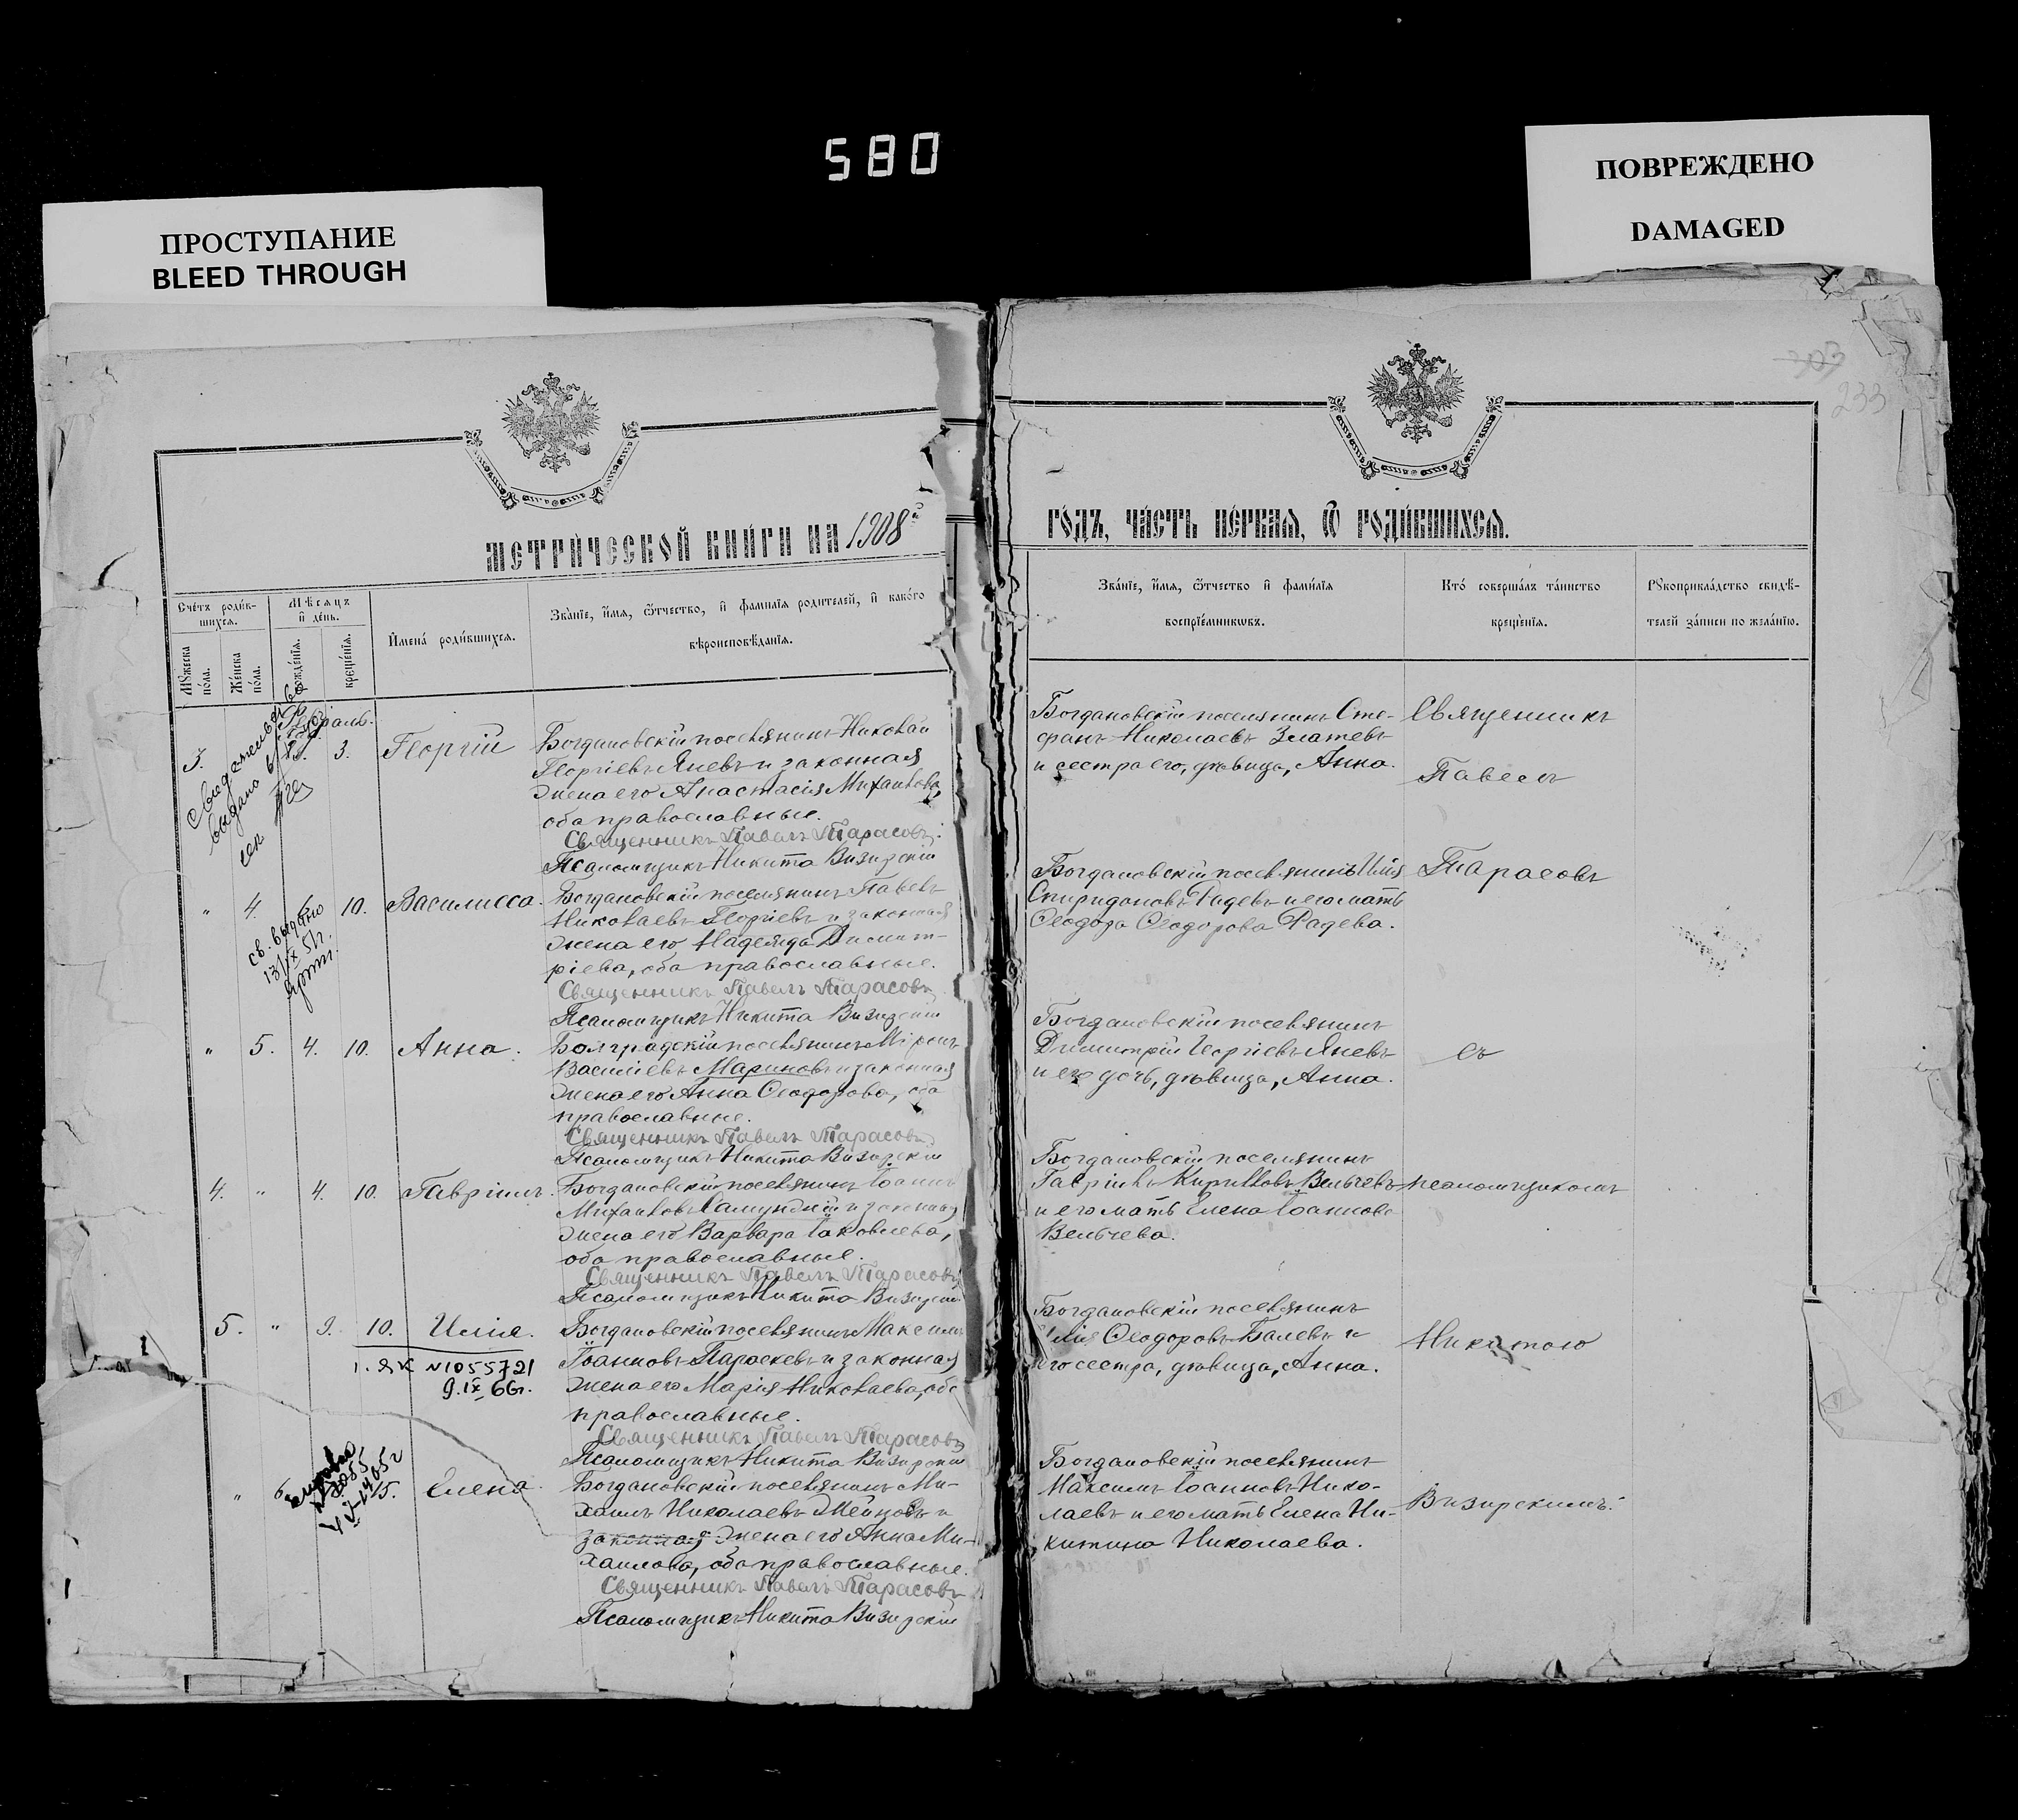 580
ПРОСТУПАНИЕ
BLEED THROUGH
ПОВРЕЖДЕНО
DAMAGED
303
233
МЕТРИЧЕСКОЙ КНИГИ НА 1908й
ГОДЪ, ЧАСТЬ ПЕРВАЯ, Ѡ РОДИВШИХСЯ.
Счетъ родив-
шихся.
Мѣсяцъ
и день.
Мужеска
пола.
Женска
пола.
рожденія.
крещенія.
Имена родившихся.
Званіе, имя, ѿчество, и фамилія родителей, и какого
вѣроисповѣданія.
Званіе, имя, ѿчество и фамилія
воспріемниковъ.
Кто совершалъ таинство
крещенія.
Рукоприкладство свидѣ-
телей записи по желанію.
Февраль.
3. 3. Георгій
Богдановскій поселянинъ Николай
Георгіевъ Яневъ и законная
жена его Анастасія Михаилова,
оба православные.
Священникъ Павелъ Тарасовъ.
Псаломщикъ Никита Визирскій
Богдановскій поселянинъ Сте-
фанъ Николаевъ Златевъ
и сестра его, дѣвица, Анна.
Священникъ
Павелъ
" 4. 10. Василисса.
св. выдано
13/IX 51г.
Богдановскій поселянинъ Павелъ
Николаевъ Георгіевъ и законная
жена его Надежда Димит-
ріева, оба православные.
Священникъ Павелъ Тарасовъ
Псаломщикъ Никита Визирскій
Богдановскій поселянинъ Илія
Спиридоновъ Радевъ и его мать
Ѳеодора Ѳеодорова Радева.
Тарасовъ
" 5. 4. 10. Анна.
Болградскій поселянинъ Міронъ
Василіевъ Мариновъ и законная
жена его Анна Ѳеодорова, оба
православные.
Священникъ Павелъ Тарасовъ
Псаломщикъ Никита Визирскій
Богдановскій поселянинъ
Димитрій Георгіевъ Яневъ
и его дочь, дѣвица, Анна.
съ
4. " 4. 10. Гавріилъ.
Богдановскій поселянинъ Іоаннъ
Михаиловъ и законная
жена его Варвара Іаковлева,
оба православные.
Священникъ Павелъ Тарасовъ
Псаломщикъ Никита Визирскій
Богдановскій поселянинъ
Гавріилъ Кирилловъ Вельчевъ
и его мать Елена Іоаннова
Вельчева.
псаломщикомъ
5. " 9. 10. Илія.
N1055721
9.IX 66г.
Богдановскій поселянинъ Максимъ
Іоанновъ Параскевъ и законная
жена его Марія Николаева, оба
православные.
Священникъ Павелъ Тарасовъ
Псаломщикъ Никита Визирскій
Богдановскій поселянинъ
Илія Ѳеодоровъ Балевъ и
его сестра, дѣвица, Анна.
Никитою
" 6. 15. Елена.
Богдановскій поселянинъ Ми-
хаилъ Николаевъ и
законная жена его Анна Ми-
хаилова, оба православные.
Священникъ Павелъ Тарасовъ
Псаломщикъ Никита Визирскій
Богдановскій поселянинъ
Максимъ Іоанновъ Нико-
лаевъ и его мать Елена Ни-
китина Николаева.
Визирскимъ.